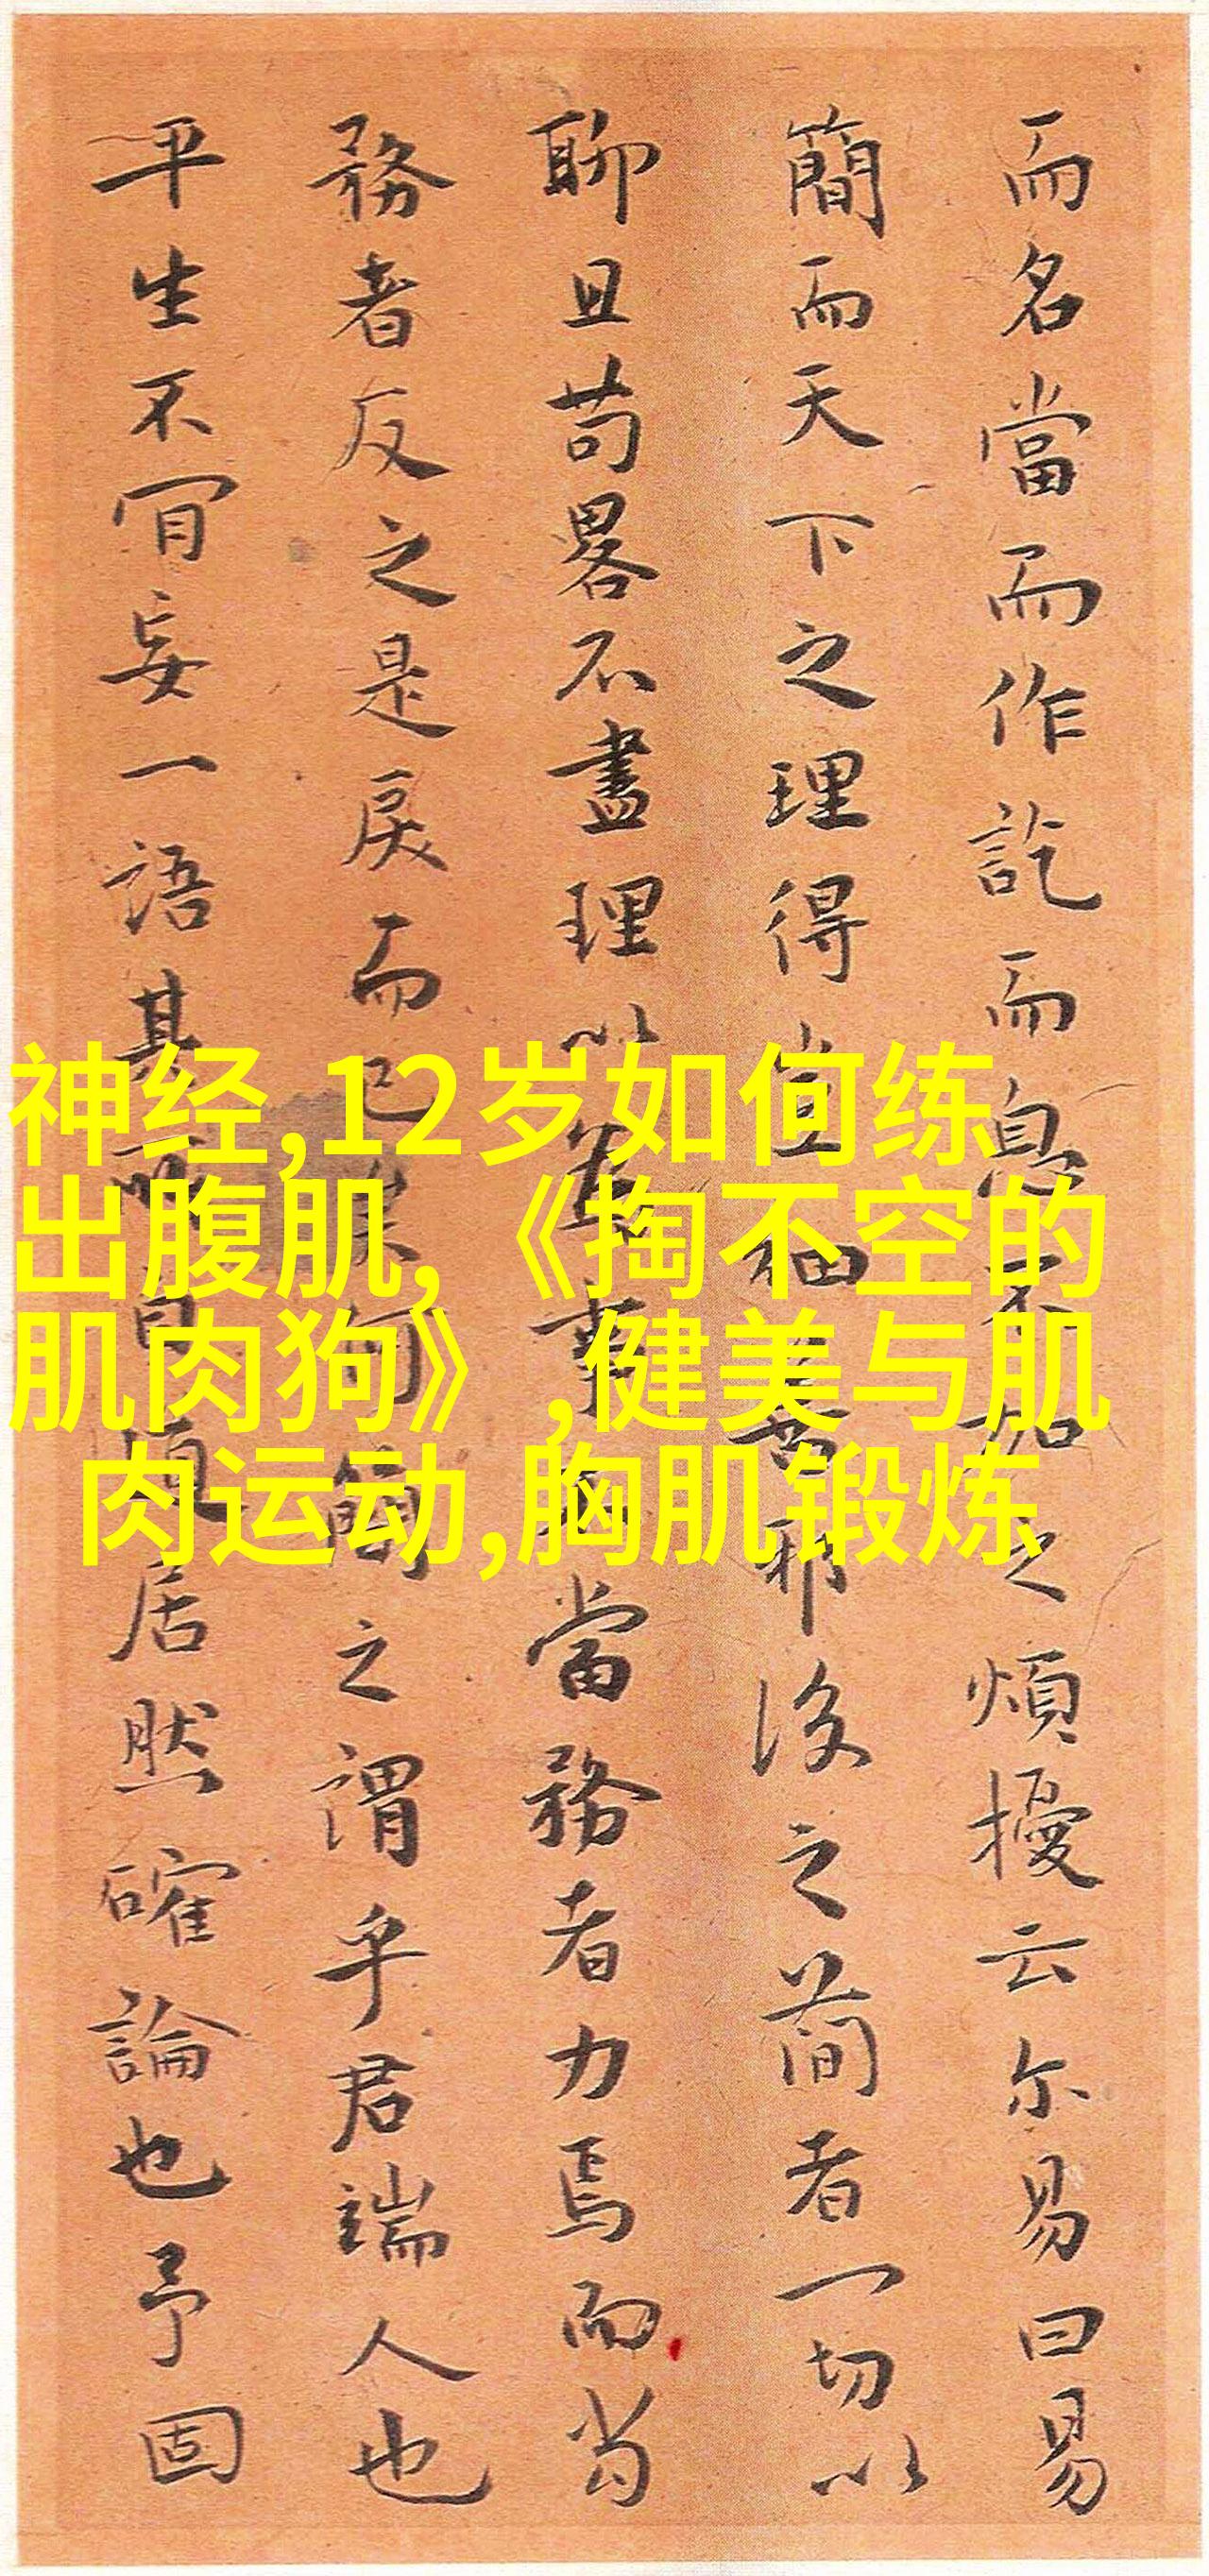 而名當而作訖而息不如之煩擾云尔易曰易
簡而天下之理得豈細若耶後之簡者一切以
聊且苟畧不盡理以為事當務者力焉而當
務者反之是戾而已矣何簡之謂乎君端人也
平生不肎妄一語其所自道居然確論也予固
神经,12岁如何练
出腹肌,《掏不空的
肌肉狗》,健美与肌
肉运动,胸肌锻炼